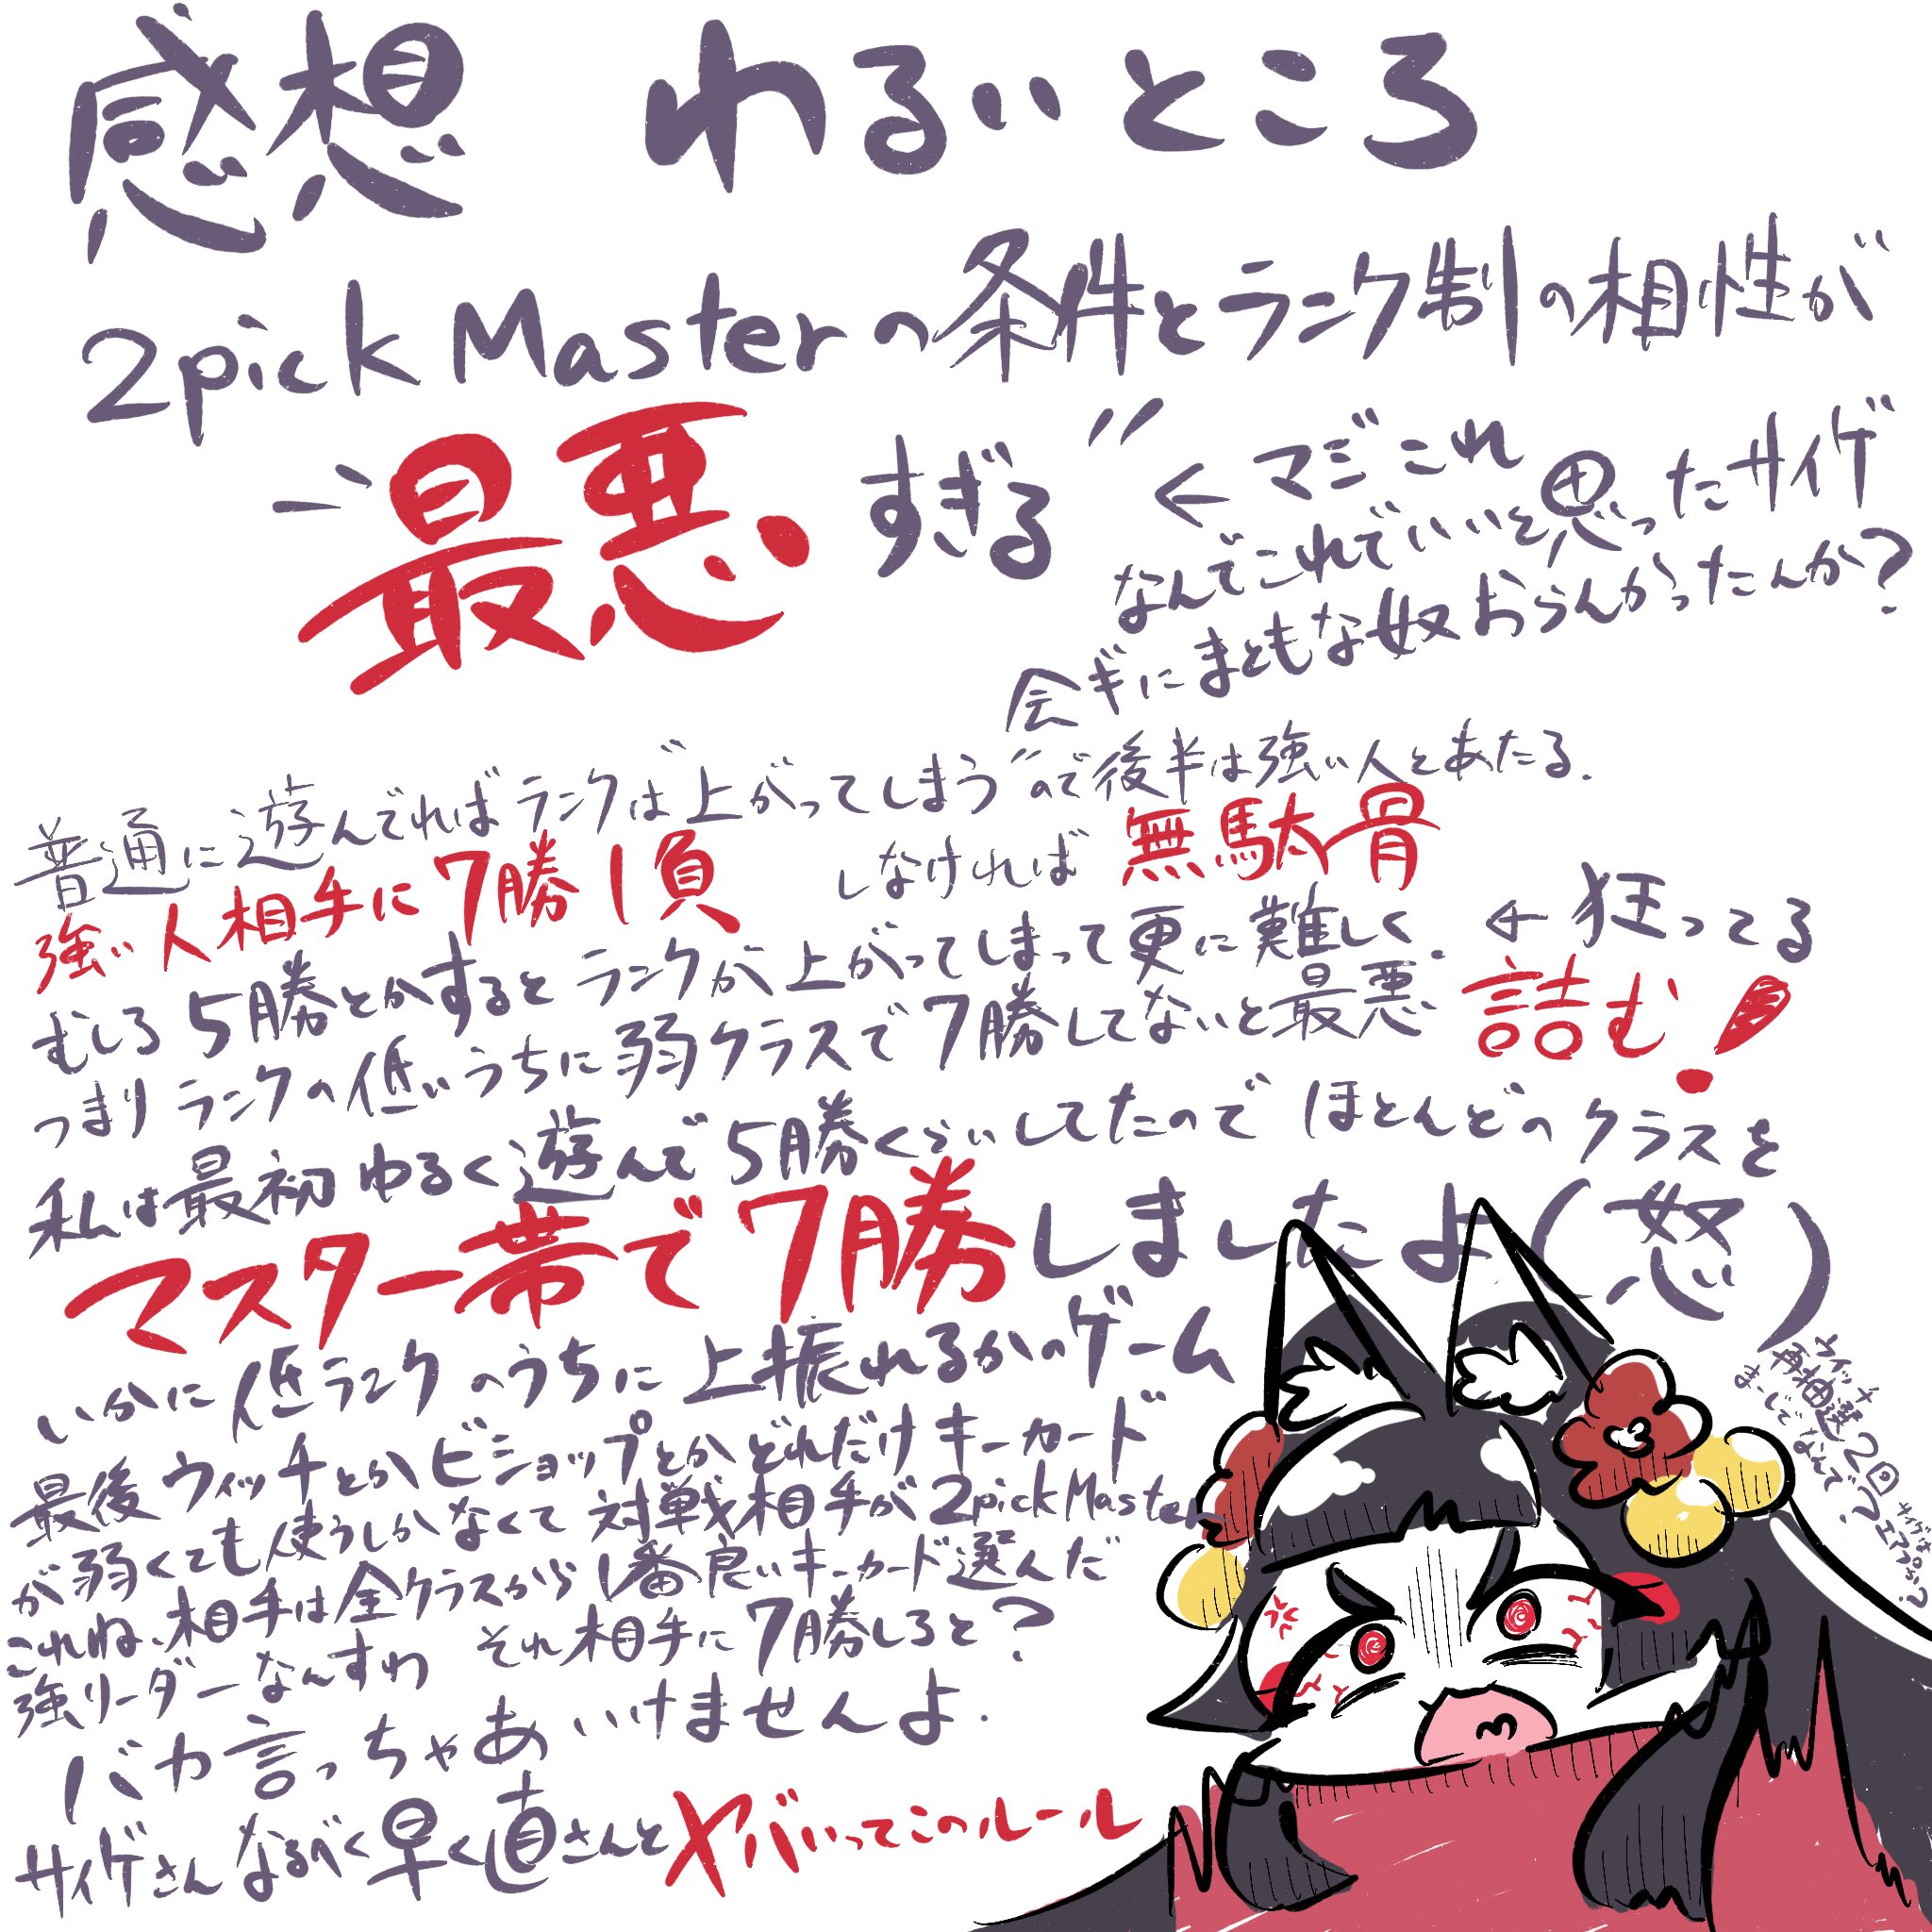 感想 わるいところ
2pick Masterの条件とランク制の相性が
最悪すぎる
←マジこれ
なんでこれでいいと思ったサイゲ
会ギにまともな奴おらんかったんか?
普通に遊んでればランクは上がってしまうので後半は強い人とあたる.
強い人相手に7勝1負しなければ無駄骨
むしろ5勝とかするとランクが上がってしまって更に難しく. ←狂ってる
つまりランクの低いうちに弱クラスで7勝してないと最悪詰む!
私は最初ゆるく遊んで5勝くらいしてたのでほとんどのクラスを
マスター帯で7勝しましたよ(怒)
いかに低ランクのうちに上振れるかのゲーム
最後ウィッチとかビショップとかどれだけキーカード
が弱くても使うしかなくて対戦相手が2pick Master
これね、相手は全クラスから1番良いキーカード選んだ
強リーダーなんすわ それ相手に7勝しろと?
バカ言っちゃあいけませんよ.
サイゲさんなるべく早く直さんとヤバいってこのルール
再抽選2回
なんで?